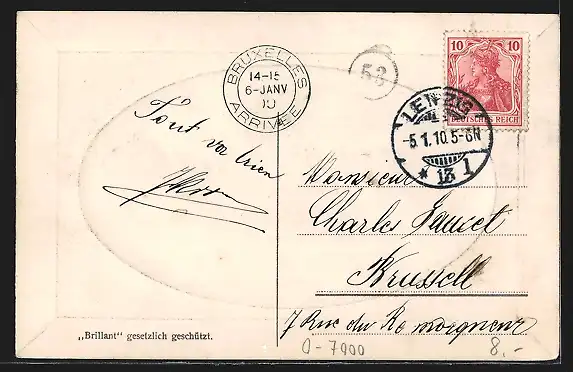 BRUXELLES
14-15
6-JANV
10
ARRIVEE
53
10 10
DEUTSCHES REICH
LEIPZIG
-5.1.10.5-6N
* 13 1
Tout va bien
Monsieur
Charles
Brussell
7 Rue du Remorqueur
„Brillant“ gesetzlich geschützt.
0-7000
8.-